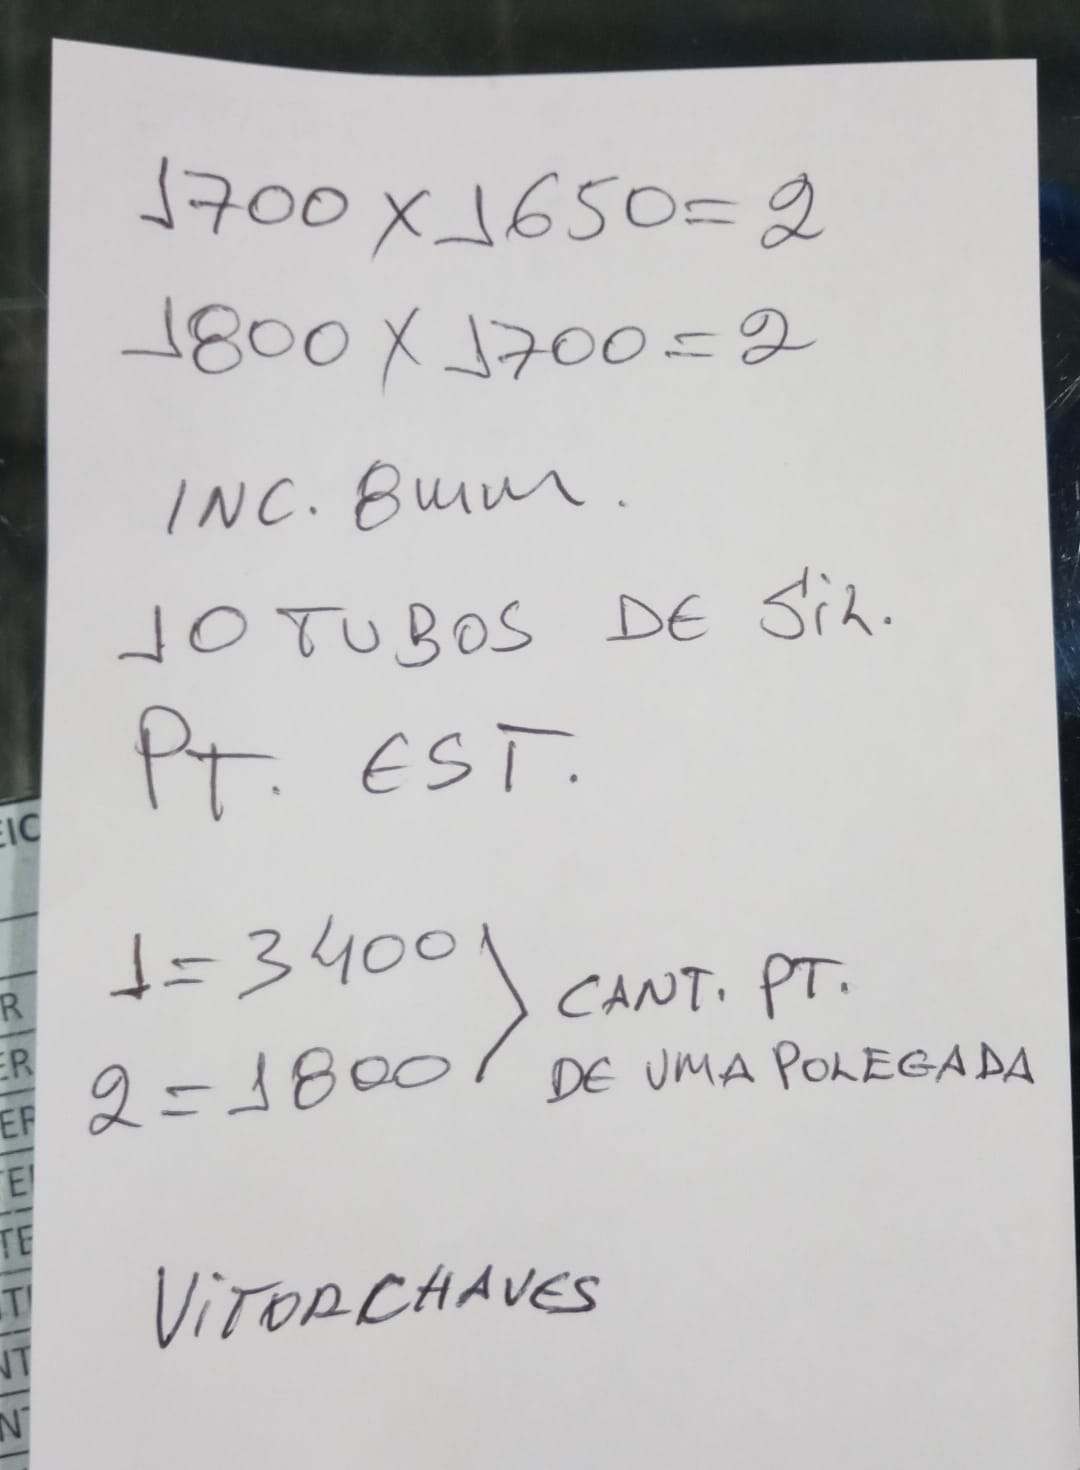 1700 X 1650 = 2
1800 X 1700 = 2
INC. 8mm.
10 TUBOS DE Sil.
PT. EST.
1 = 3400
2 = 1800
CANT. PT.
DE UMA POLEGADA
ViTOR CHAVES
EIC
R
ER
ER
TE
TE
NT